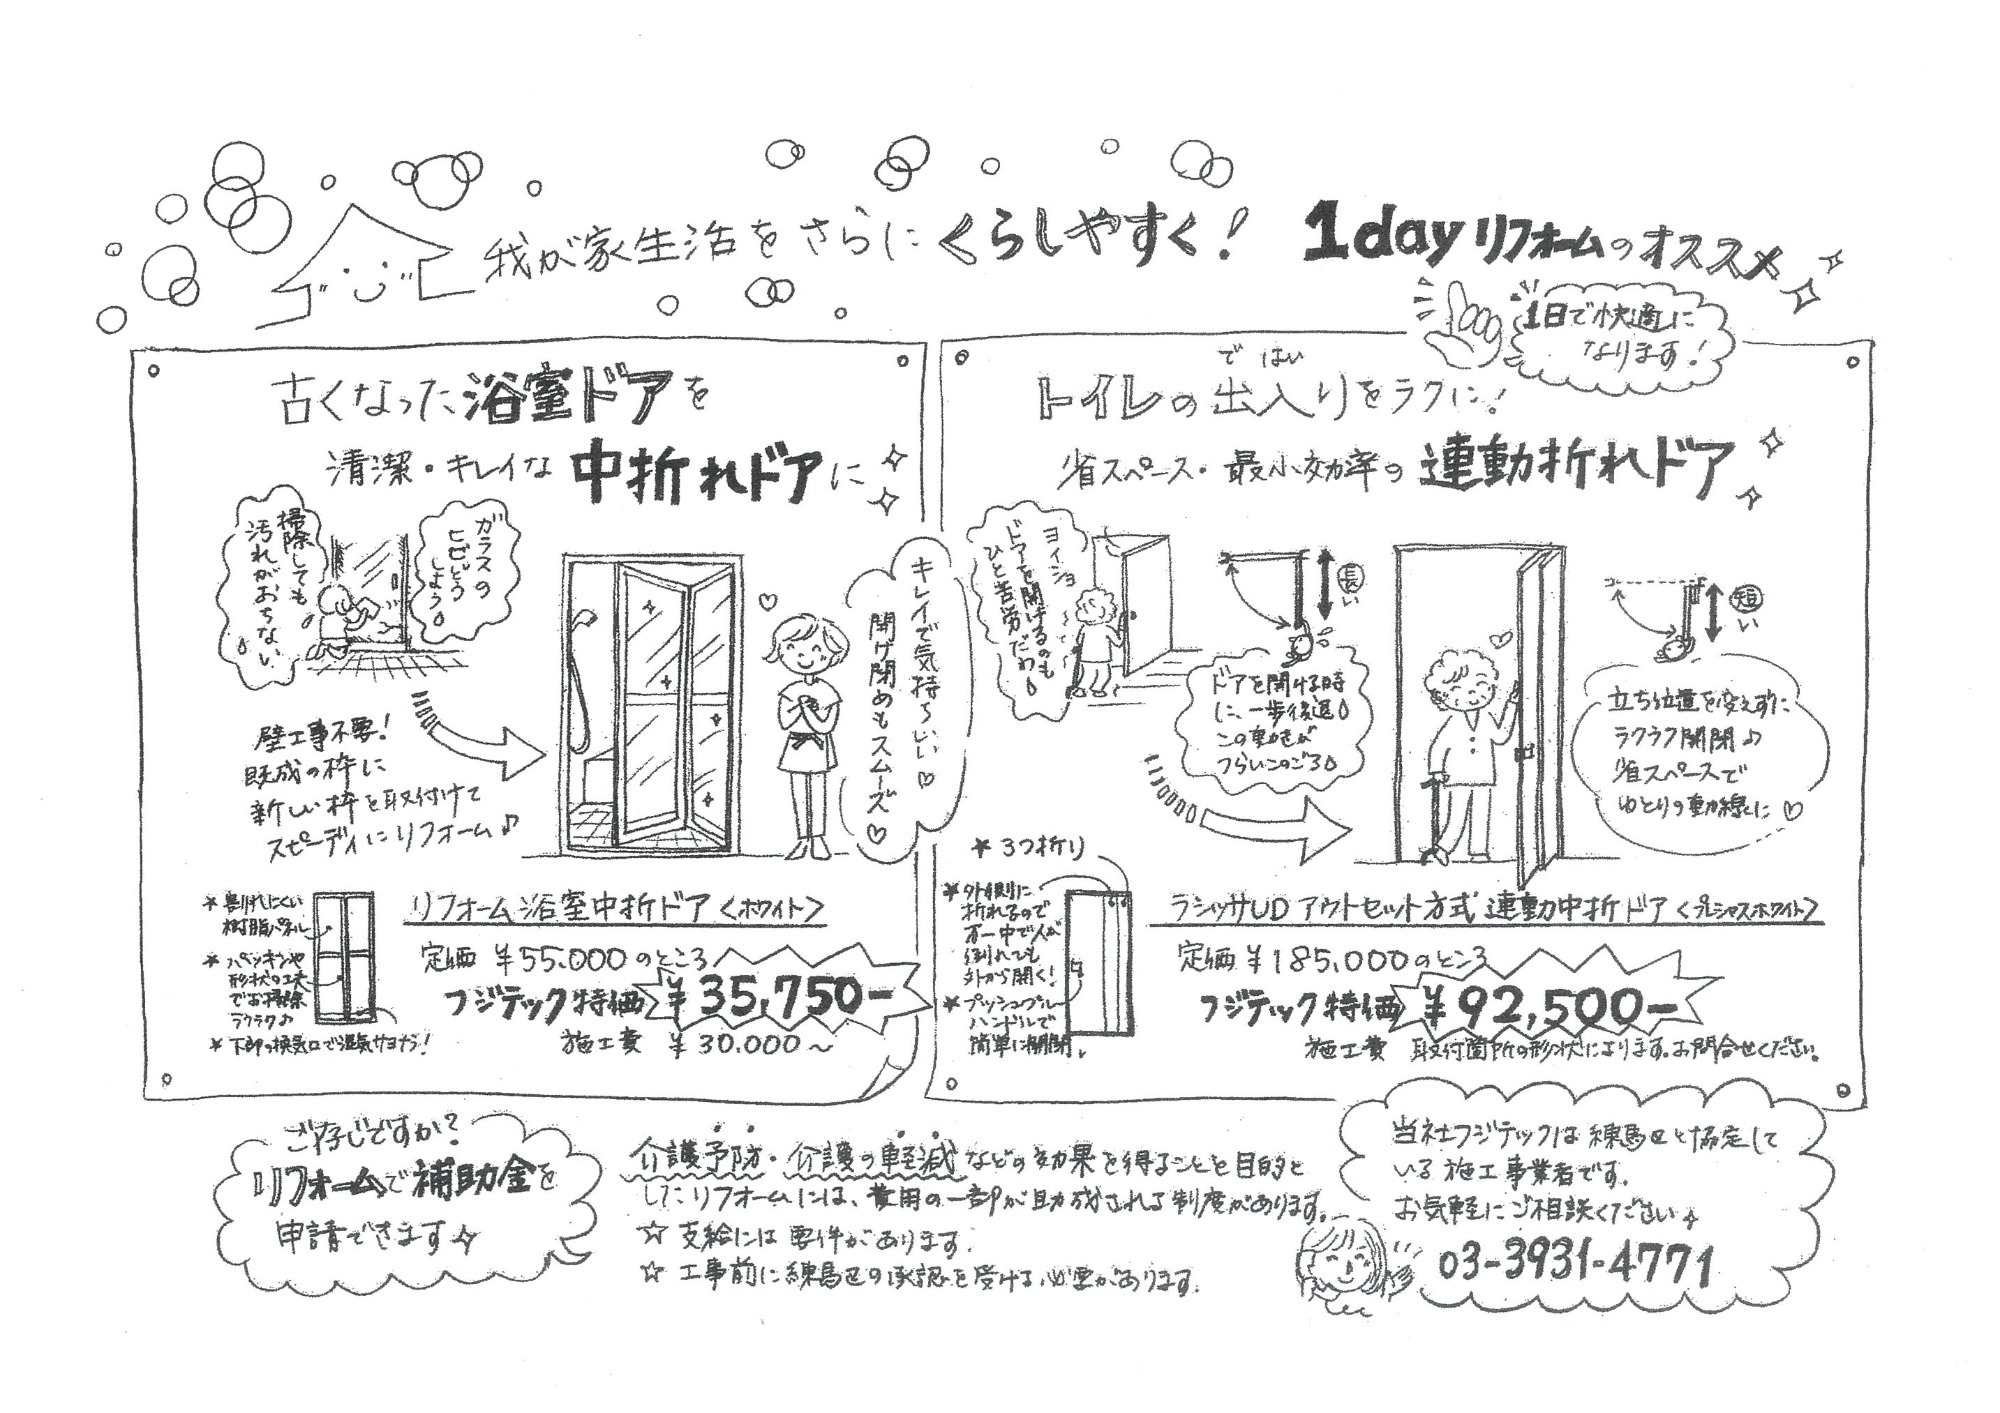 我が家生活をさらにくらしやすく！ 1dayリフォームのオススメ
1日で快適に
なります！
古くなった浴室ドアを
清潔・キレイな中折れドアに
掃除しても
汚れがおちない
ガラスの
ヒビどう
しよう
壁工事不要！
既成の枠に
新しい枠を取付けて
スピーディにリフォーム♪
キレイで気持ちいい♡
開け閉めもスムーズ♡
★割れにくい
樹脂パネル
★パッキンや
形状の工夫
でお掃除
ラクラク♪
★下部の換気口で湿気サヨナラ！
リフォーム浴室中折ドア＜ホワイト＞
定価 ¥55,000のところ
フジテック特価 ¥35,750-
施工費 ¥30,000〜
では
はい
トイレの出入りをラクに！
省スペース・最小効率の連動折れドア
ヨイショ
ドアを開けるのも
ひと苦労だわ
長い
ドアを開ける時
に、一歩後退
この動きが
つらいこのごろ
短い
立ち位置を変えずに
ラクラク開閉♪
省スペースで
ゆとりの動線に♡
★3つ折り
★外側に
折れるので
万一中で人が
倒れても
外から開く！
★プッシュプル
ハンドルで
簡単に開閉。
ラシッサUD アウトセット方式 連動中折ドア＜プレシャスホワイト＞
定価 ¥185,000のところ
フジテック特価 ¥92,500-
施工費 取付箇所の形状によります。お問合せください。
ご存じですか？
リフォームで補助金を
申請できます
介護予防・介護の軽減などの効果を得ることを目的と
したリフォームには、費用の一部が助成される制度があります。
☆支給には要件があります。
☆工事前に練馬区の承認を受ける必要があります。
当社フジテックは練馬区と協定して
いる施工事業者です。
お気軽にご相談ください
03-3931-4771